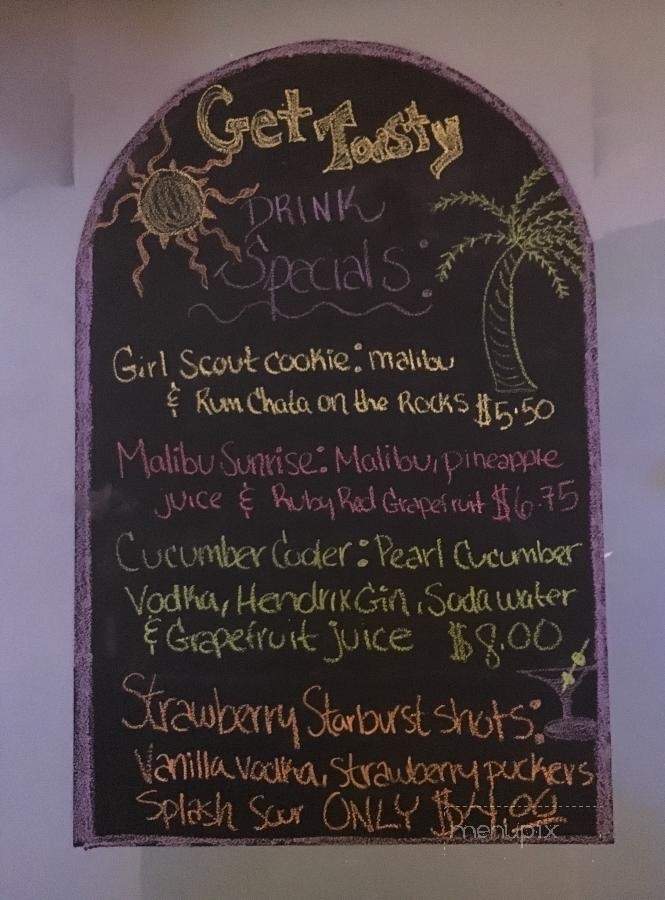 Get Toasty
DRINK
Specials:
Girl Scout cookie: malibu
& Rum Chata on the Rocks $5.50
Malibu Sunrise: Malibu, pineapple
juice & Ruby Red Grapefruit $6.75
Cucumber Cooler: Pearl Cucumber
Vodka, Hendrix Gin, Soda water
& Grapefruit juice $8.00
Strawberry Starburst shots:
Vanilla vodka, strawberry puckers
Splash Sour ONLY
menupix